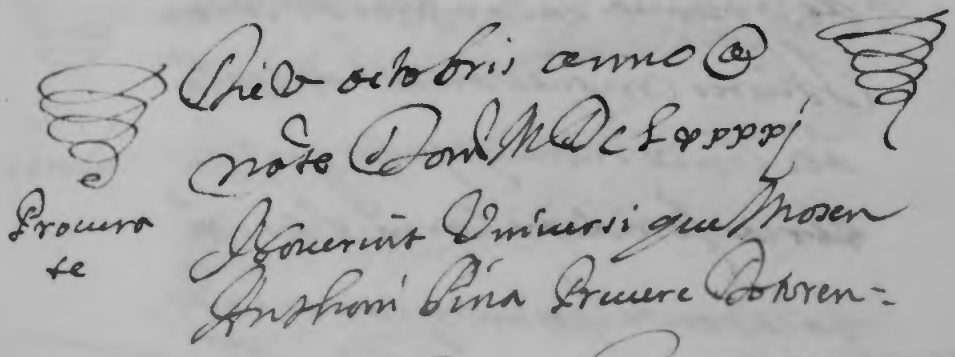 Die V octobris anno @
nate Dom MDCLxxxxj
Procura
te
Noverint Universi que Mosen
Anthoni Pina Prevere Dotoren=